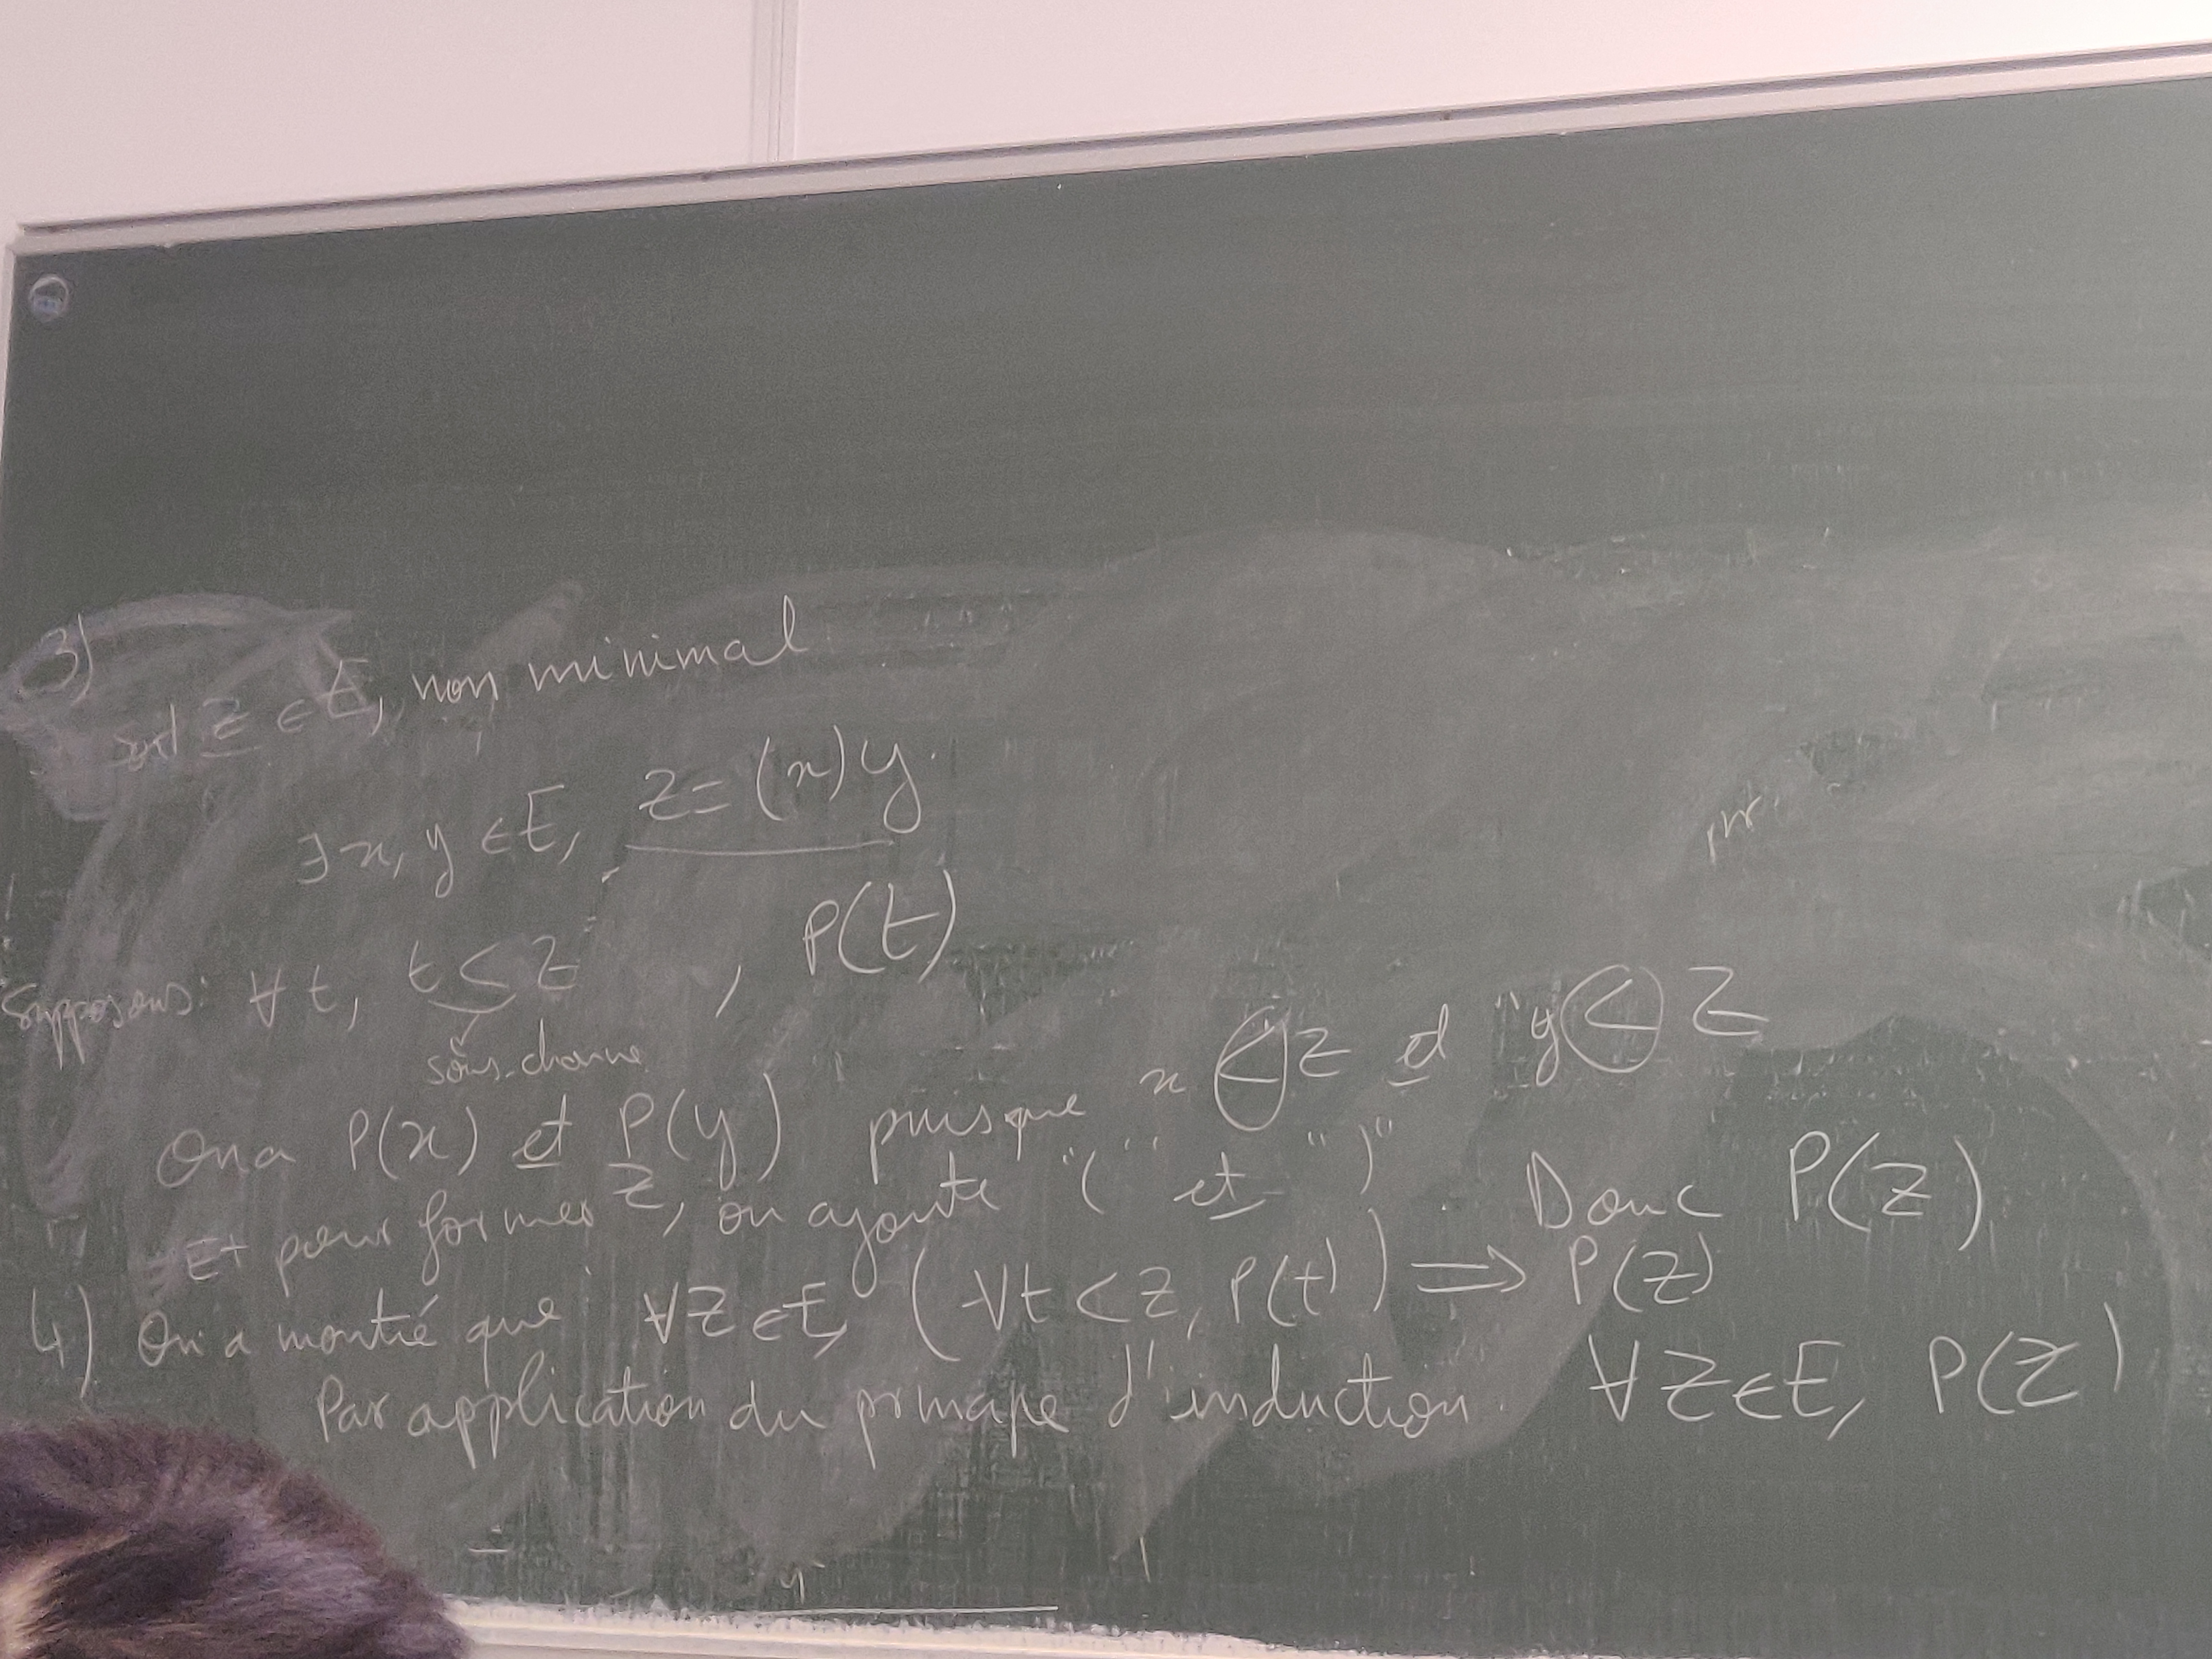 3)
soit z ∈ E, non minimal
∃ x, y ∈ E, z = (x) y.
Supposons: ∀ t, t < z , P(t)
sous-chaine
On a P(x) et P(y) puisque x < z et y < z
Et pour former z, on ajoute "(" et ")". Donc P(z)
4) On a montré que ∀ z ∈ E, (∀ t < z, P(t)) ⇒ P(z)
Par application du principe d'induction. ∀ z ∈ E, P(z)